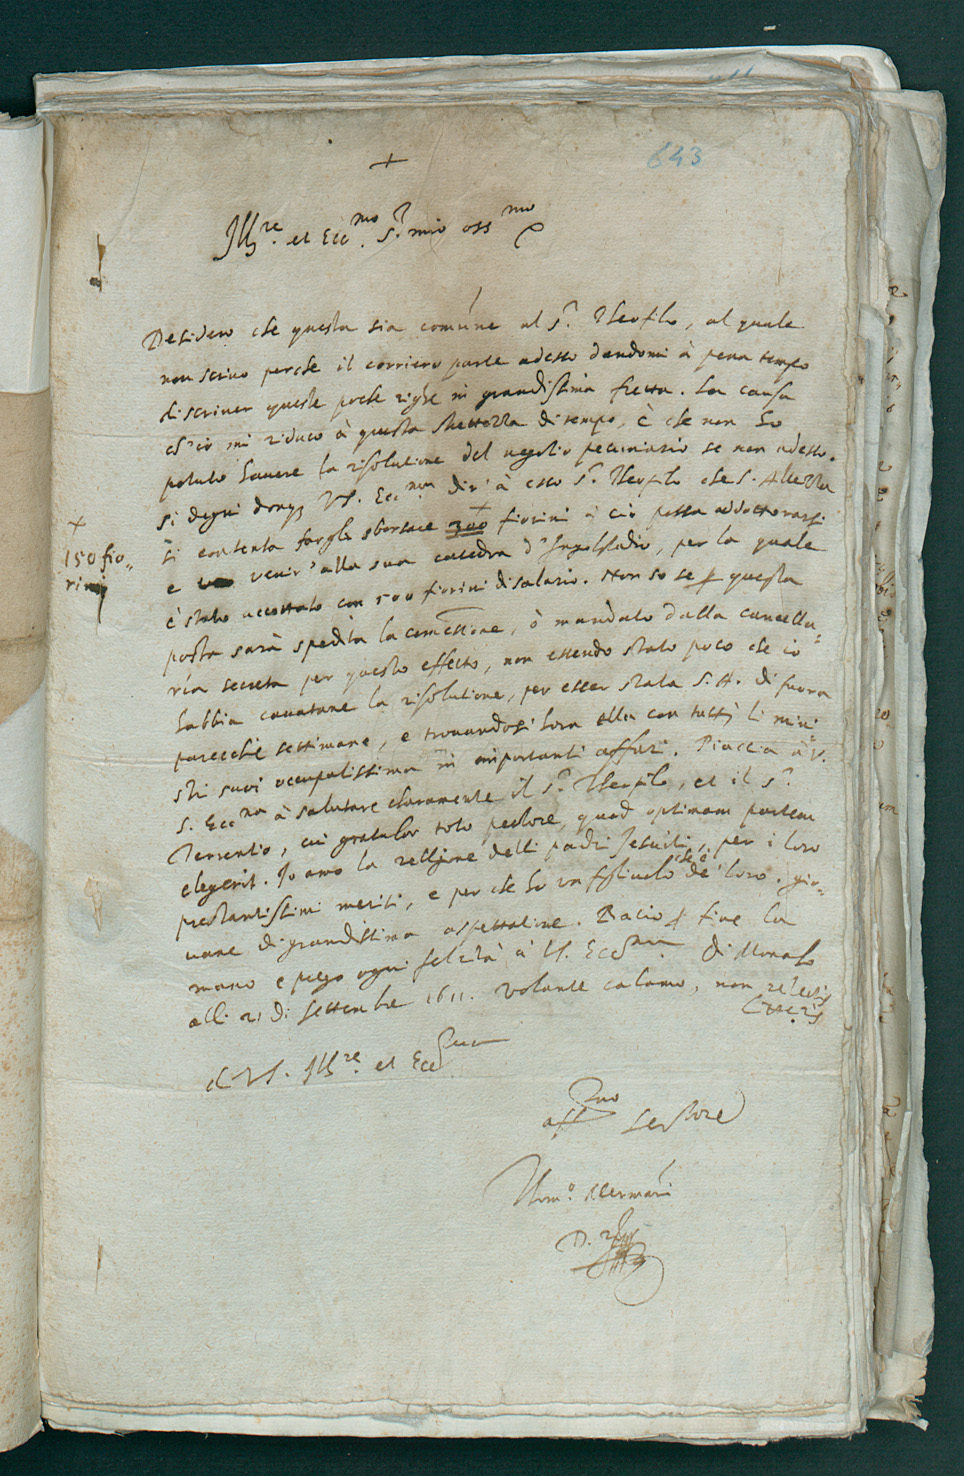 643
+
Ill.re et Ecc.mo S.r mio oss.mo
Desidero che questa sia comune al S.r Theofilo, al quale
non scrivo perche il corriero parte adesso dandomi à pena tempo
di scriver queste poche righe in grandissima fretta. La causa
ch'io mi riduco à questa strettezza di tempo, è che non ho
potuto havere la risolutione del negotio pecuniario se non adesso.
Si degni donq; V.S. Ecc.ma dir' à esso S.r Theofilo che S. Altezza
si contenta fargli sborsare 300 fiorini à ciò possa addottorarsi
+
150 fio-
rini
e venir' alla sua catedra d'Ingolstadio, per la quale
è stato accettato con 500 fiorini di salario. Non so se p questa
posta sarà spedita la comessione, ò mandato dalla cancella=
ria secreta per questo effetto, non essendo stato poco che io
habbia cavatane la risolutione, per esser stata S. A. di fuora
parecchie settimane, e trovandosi hora ella con tutti li mini
stri suoi occupatissima in importanti affari. Piaccia à V.
S. Ecc.ma à salutare charamente il S.r Theofilo, et il S.r
Terrentio, cui gratulor toto pectore, quod optimam partem
elegerit. Io amo la religione delli padri Jesuiti, per i loro
prestantissimi meriti, e per che ho un figliuolo che è de' loro. gio-
vane di grandissima aspettatione. Bacio p fine la
mano e prego ogni felicità à V.S. Ecc.ma Di Monaco
alli 21 di Settembre 1611. volante calamo, non relectis
literis
Di V.S. Ill.re et Ecc.ma
aff.mo Servitore
Thom.o Mermañi
D.